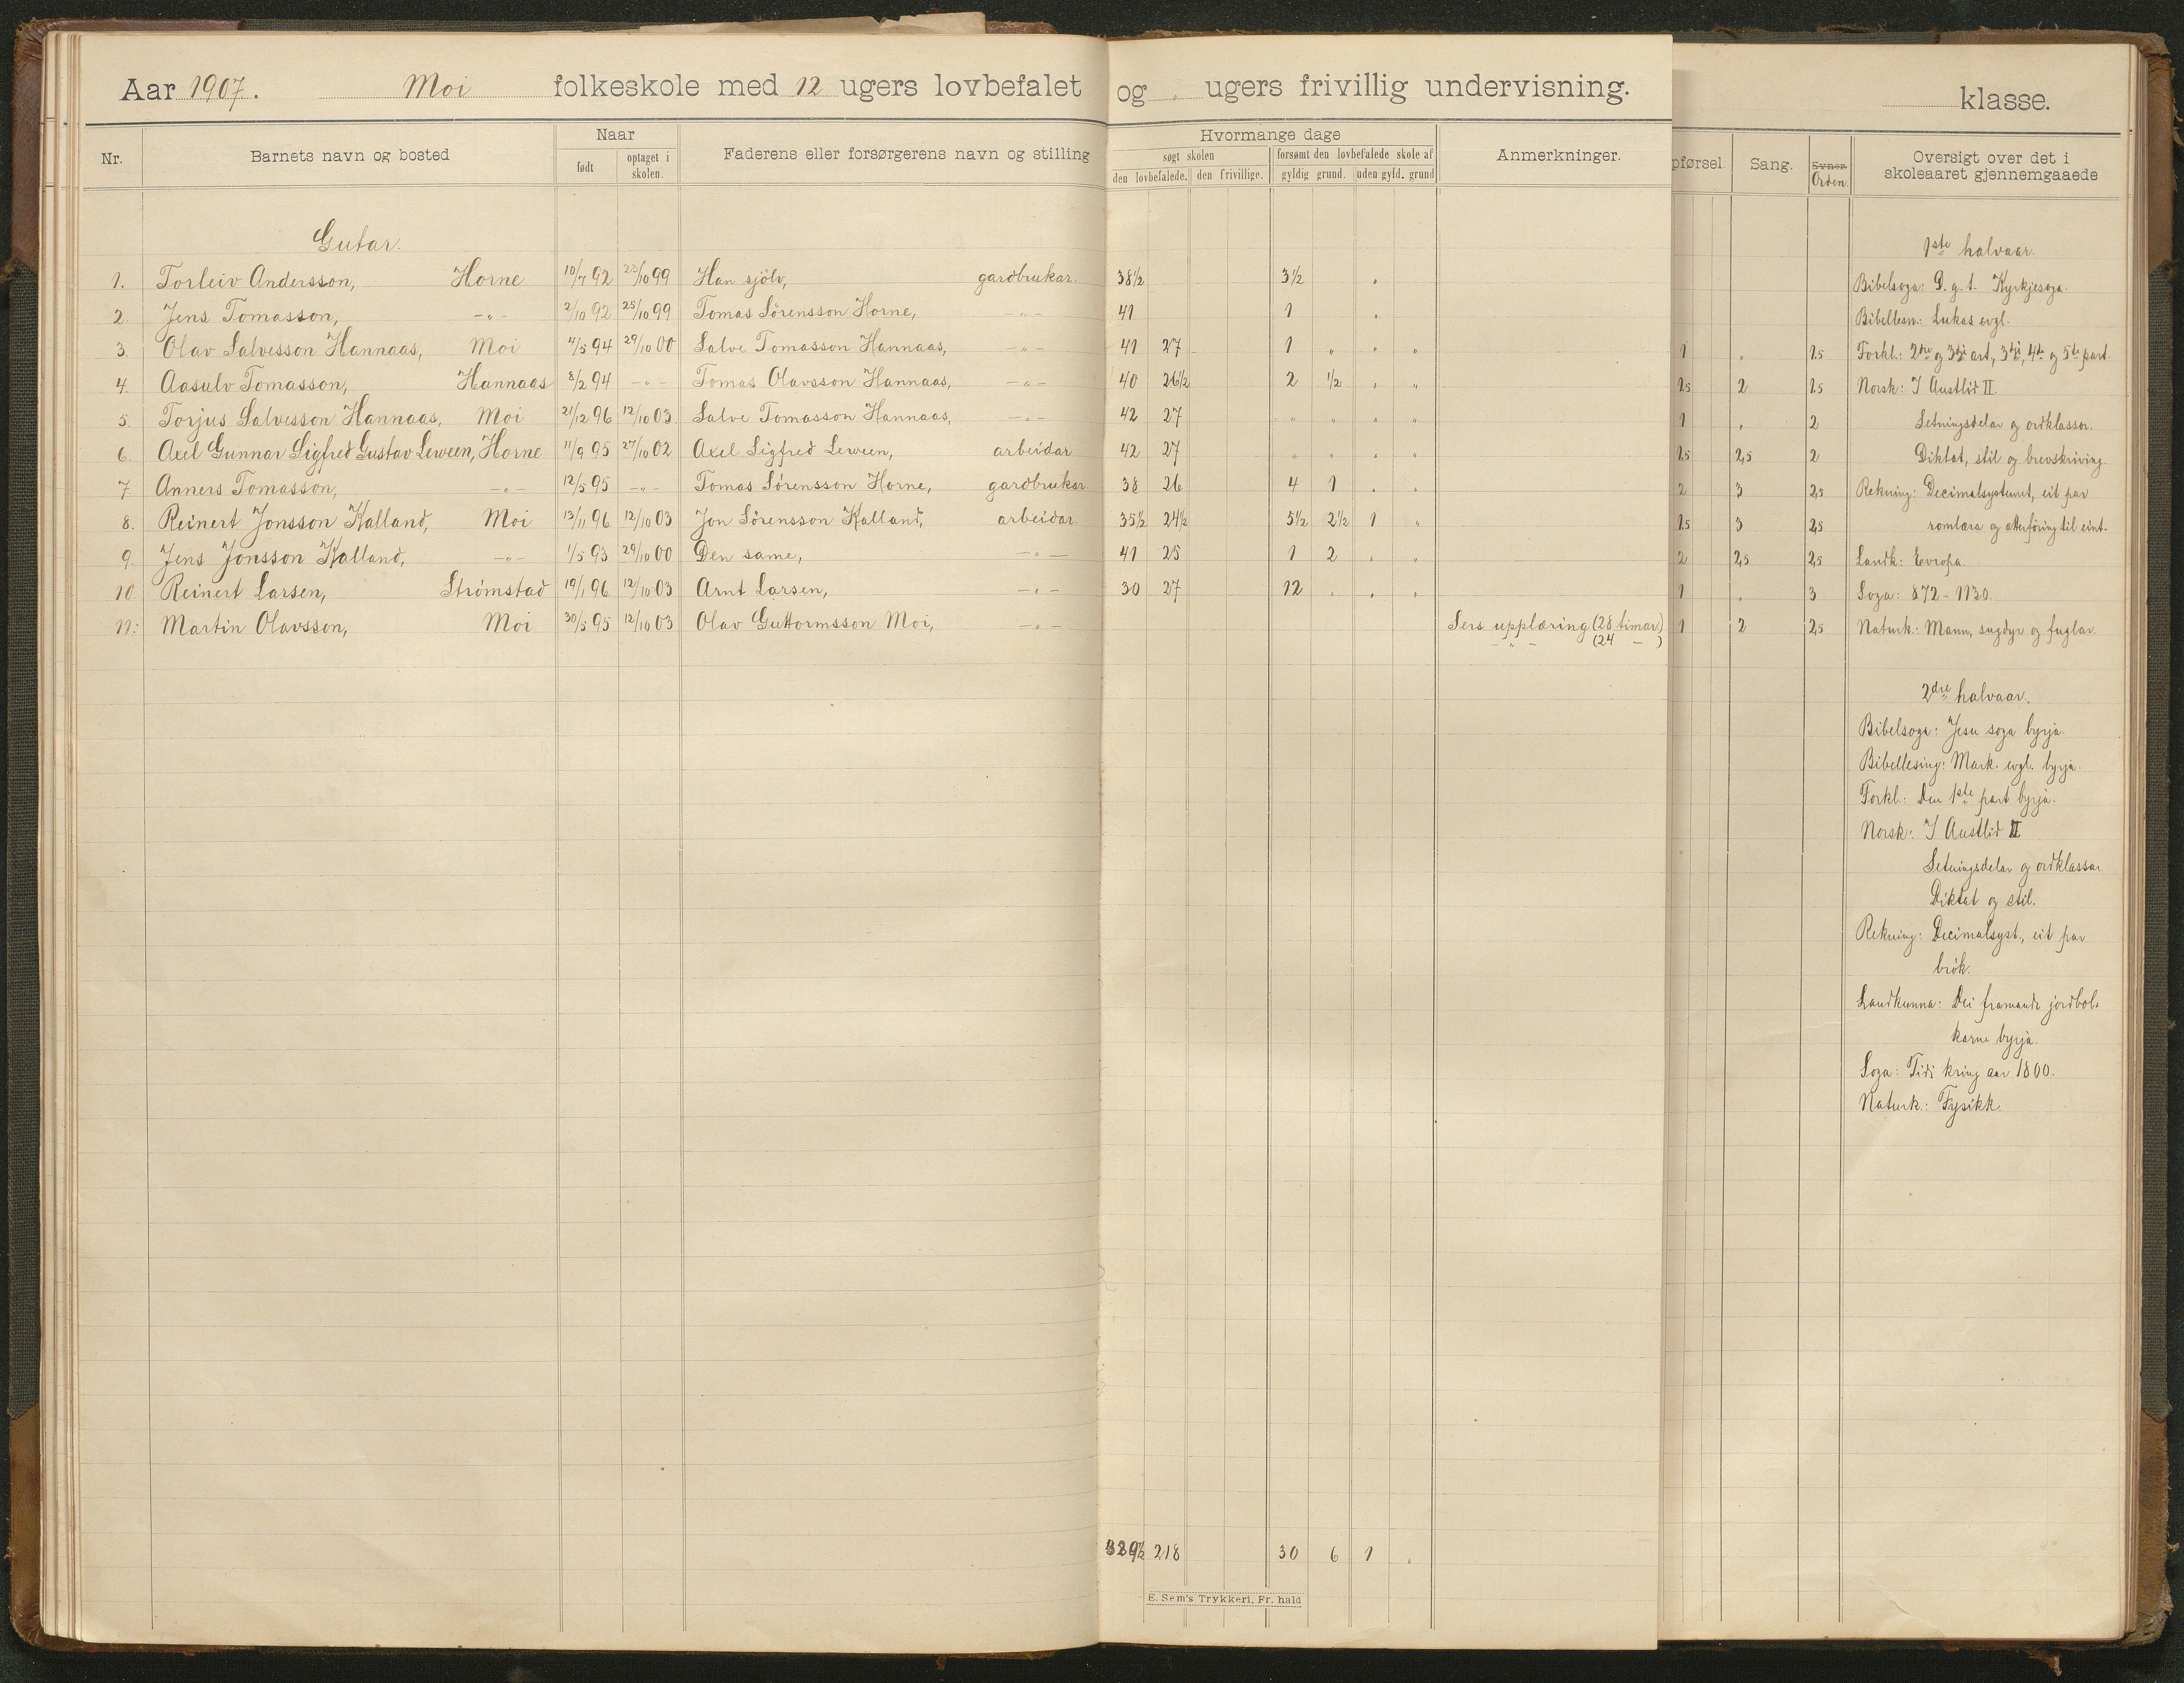 Aar 1907. Moi folkeskole med 12 ugers lovbefalet og " ugers frivillig undervisning. klasse.
Nr. Barnets navn og bosted Naar født optaget i skolen. Faderens eller forsørgerens navn og stilling
Hvormange dage
søgt skolen forsømt den lovbefalede skole af
den lovbefalede. den frivillige. gyldig grund. uden gyld. grund
Anmerkninger.
pførsel. Sang. Orden. Oversigt over det i skoleaaret gjennemgaaede
Gutar.
1. Torleiv Andersson, Horne 10/7 92 23/10 99 Han sjölv, gardbrukar. 38½ 3½ "
2. Jens Tomasson, -"- 2/10 92 25/10 99 Tomas Sörensson Horne, -"- 41 1 "
3. Olav Salvesson Hannaas, Moi 4/5 94 29/10 00 Salve Tomasson Hannaas, -"- 41 27 1 " " " 1 " 1.5
4. Aasulv Tomasson, Hannaas 8/2 94 -"- Tomas Olavsson Hannaas, -"- 40 26½ 2 ½ " " 1.5 2 1.5
5. Torjus Salvesson Hannaas, Moi 21/12 96 12/10 03. Salve Tomasson Hannaas, -"- 42 27 " " " " 1 " 2
6. Axel Gunnar Sigfred Gustav Leween, Horne 11/9 95 27/10 02 Axel Sigfred Leween, arbeidar 42 27 " " " " 1.5 2,5 2
7. Anners Tomasson, -"- 12/5 95 -"- Tomas Sörensson Horne, gardbrukar. 38 26 4 1 " " 2 3 2,5
8. Reinert Jonsson Kalland, Moi 13/11 96 12/10 03 Jon Sörensson Kalland, arbeidar. 35½ 24½ 5½ 2½ 1 " 1.5 3 2,5
9. Jens Jonsson Kalland, -"- 1/5 93 29/10 00 Den same, -"- 41 25 1 2 " " 2 2,5 2,5
10. Reinert Larsen, Strömstad 19/1 96 12/10 03 Arnt Larsen, -"- 30 27 12 " " " 1 " 3
11. Martin Olavsson, Moi 30/5 95 12/10 03 Olav Guttormsson Moi, -"- Sers upplæring (28 timar) 1 2 2,5
-"- (24 - )
1ste halvaar.
Bibelsoga: D. g. t. Kyrkjesoga.
Bibellesn.: Lukas evgl.
Forkl.: 2dre og 3dji art, 3dji, 4de og 5te part.
Norsk: I Austlid II.
Setningsdelar og ordklassor.
Diktat, stil og brevskriving.
Rekning: Decimalsystemet, eit par
romlæra og atterföring til eint.
Landk: Evropa.
Soga: 872 - 1130.
Naturk.: Mann, sugdyr og fuglar.
2dre halvaar.
Bibelsoga: Jesu soga byrja.
Bibellesing: Mark. evgl. byrja.
Forkl.: Den 1ste part byrja.
Norsk: I Austlid II
Setningsdelar og ordklassar
Diktat og stil.
Rekning: Decimalsyst., eit par
brök.
Landkunna: Dei framande jordbol-
karne byrja.
Soga: Tidi kring aar 1800.
Naturk.: Fysikk.
218 30 6 1 "
E. Sem's Trykkeri, Fr.hald